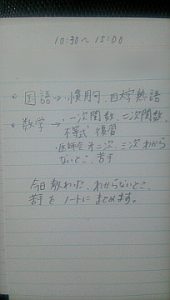 10:30〜15:00
○ 国語→慣用句、四字熟語
○ 数学→一次関数、二次関数
不等式 復習
二次、三次 わから
ないとこ、苦手
今日教わった、わからないとこ、
苦手をノートにまとめます。